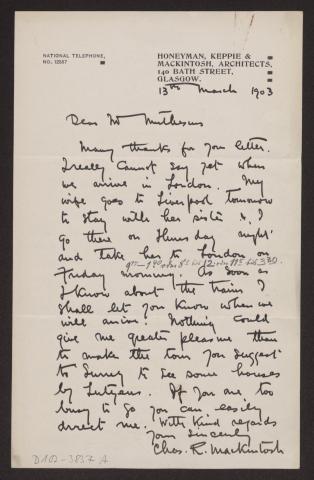 NATIONAL TELEPHONE,
HONEYMAN, KEPPIE &
MACKINTOSH, ARCHITECTS,
140 BATH STREET,
GLASGOW.
13th March 1903
Dear Mr Muthesius
Many thanks for your letter.
I really cannot say yet when
we arrive in London. My
wife goes to Liverpool tomorrow
to stay with her sister &. I
go there on Thursday night
and take her to London on
Friday morning. As soon as
I know about the trains I
shall let you know when we
will arrive. Nothing could
give me greater pleasure than
to make the tour you suggest
to Surrey to see some houses
by Lutyens. If you are too
busy to go you can easily
direct me. With kind regards
Yours sincerely
Chas. R. Mackintosh
D102-3837 A